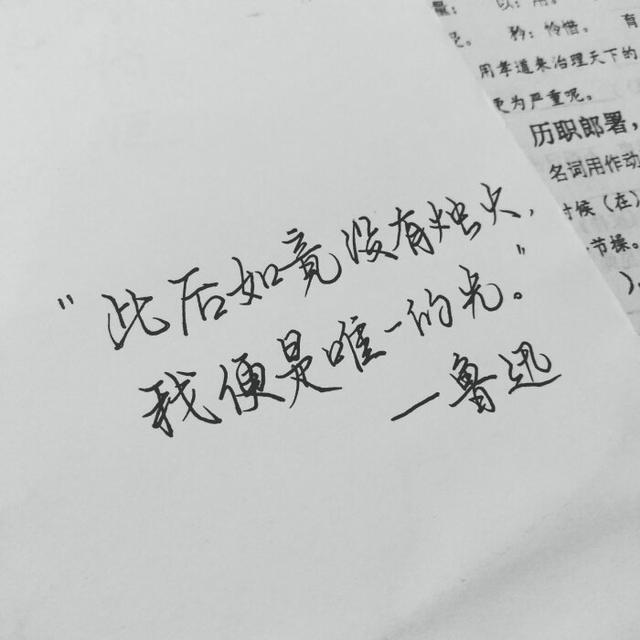 以：用。
矜：怜惜。 育
用孝道来治理天下的
更为严重呢。
历职郎署，
名词用作动
时候（在）
节操。
）。
“此后如竟没有烛火，
我便是唯一的光。”
—鲁迅